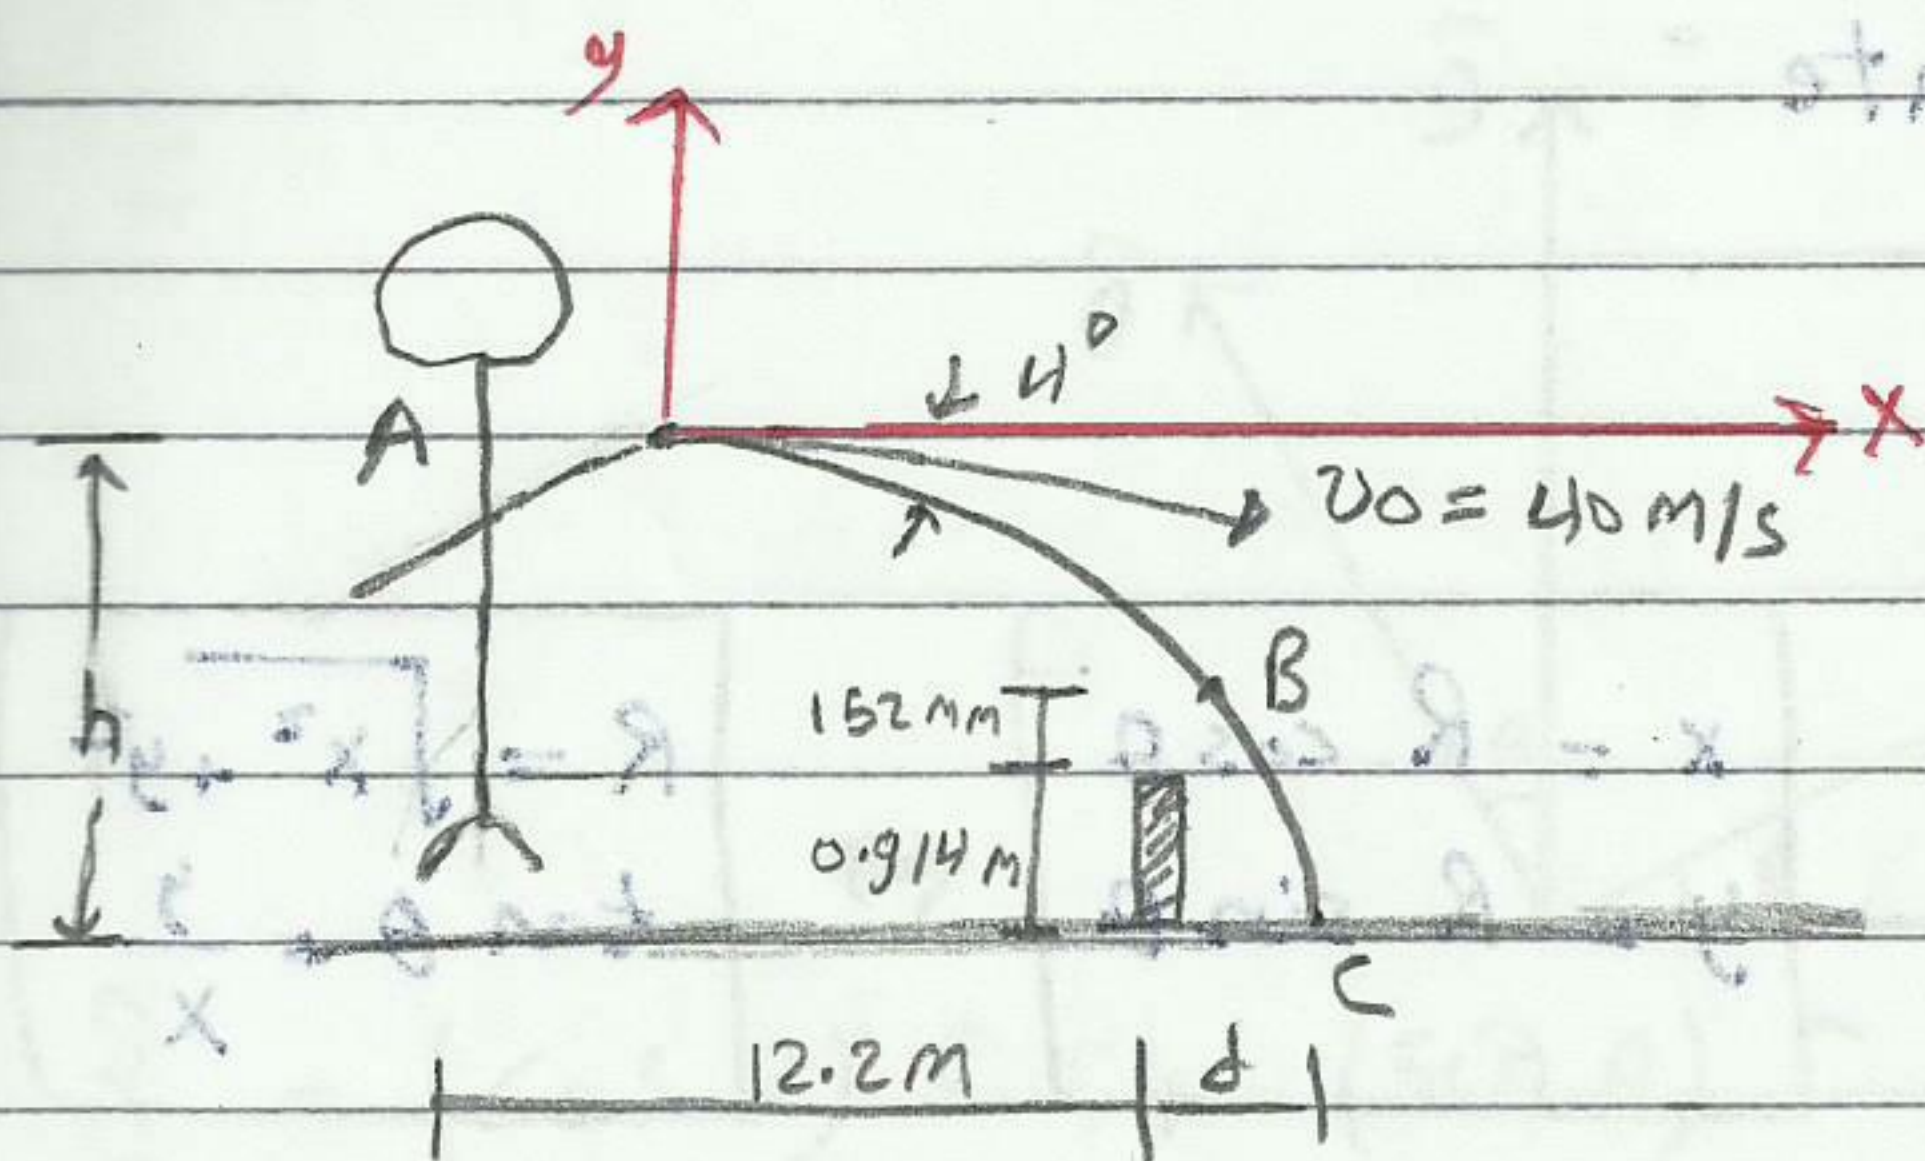 y
4°
X
A
v0 = 40 m/s
h
B
152 mm
0.914 m
C
12.2 m
d